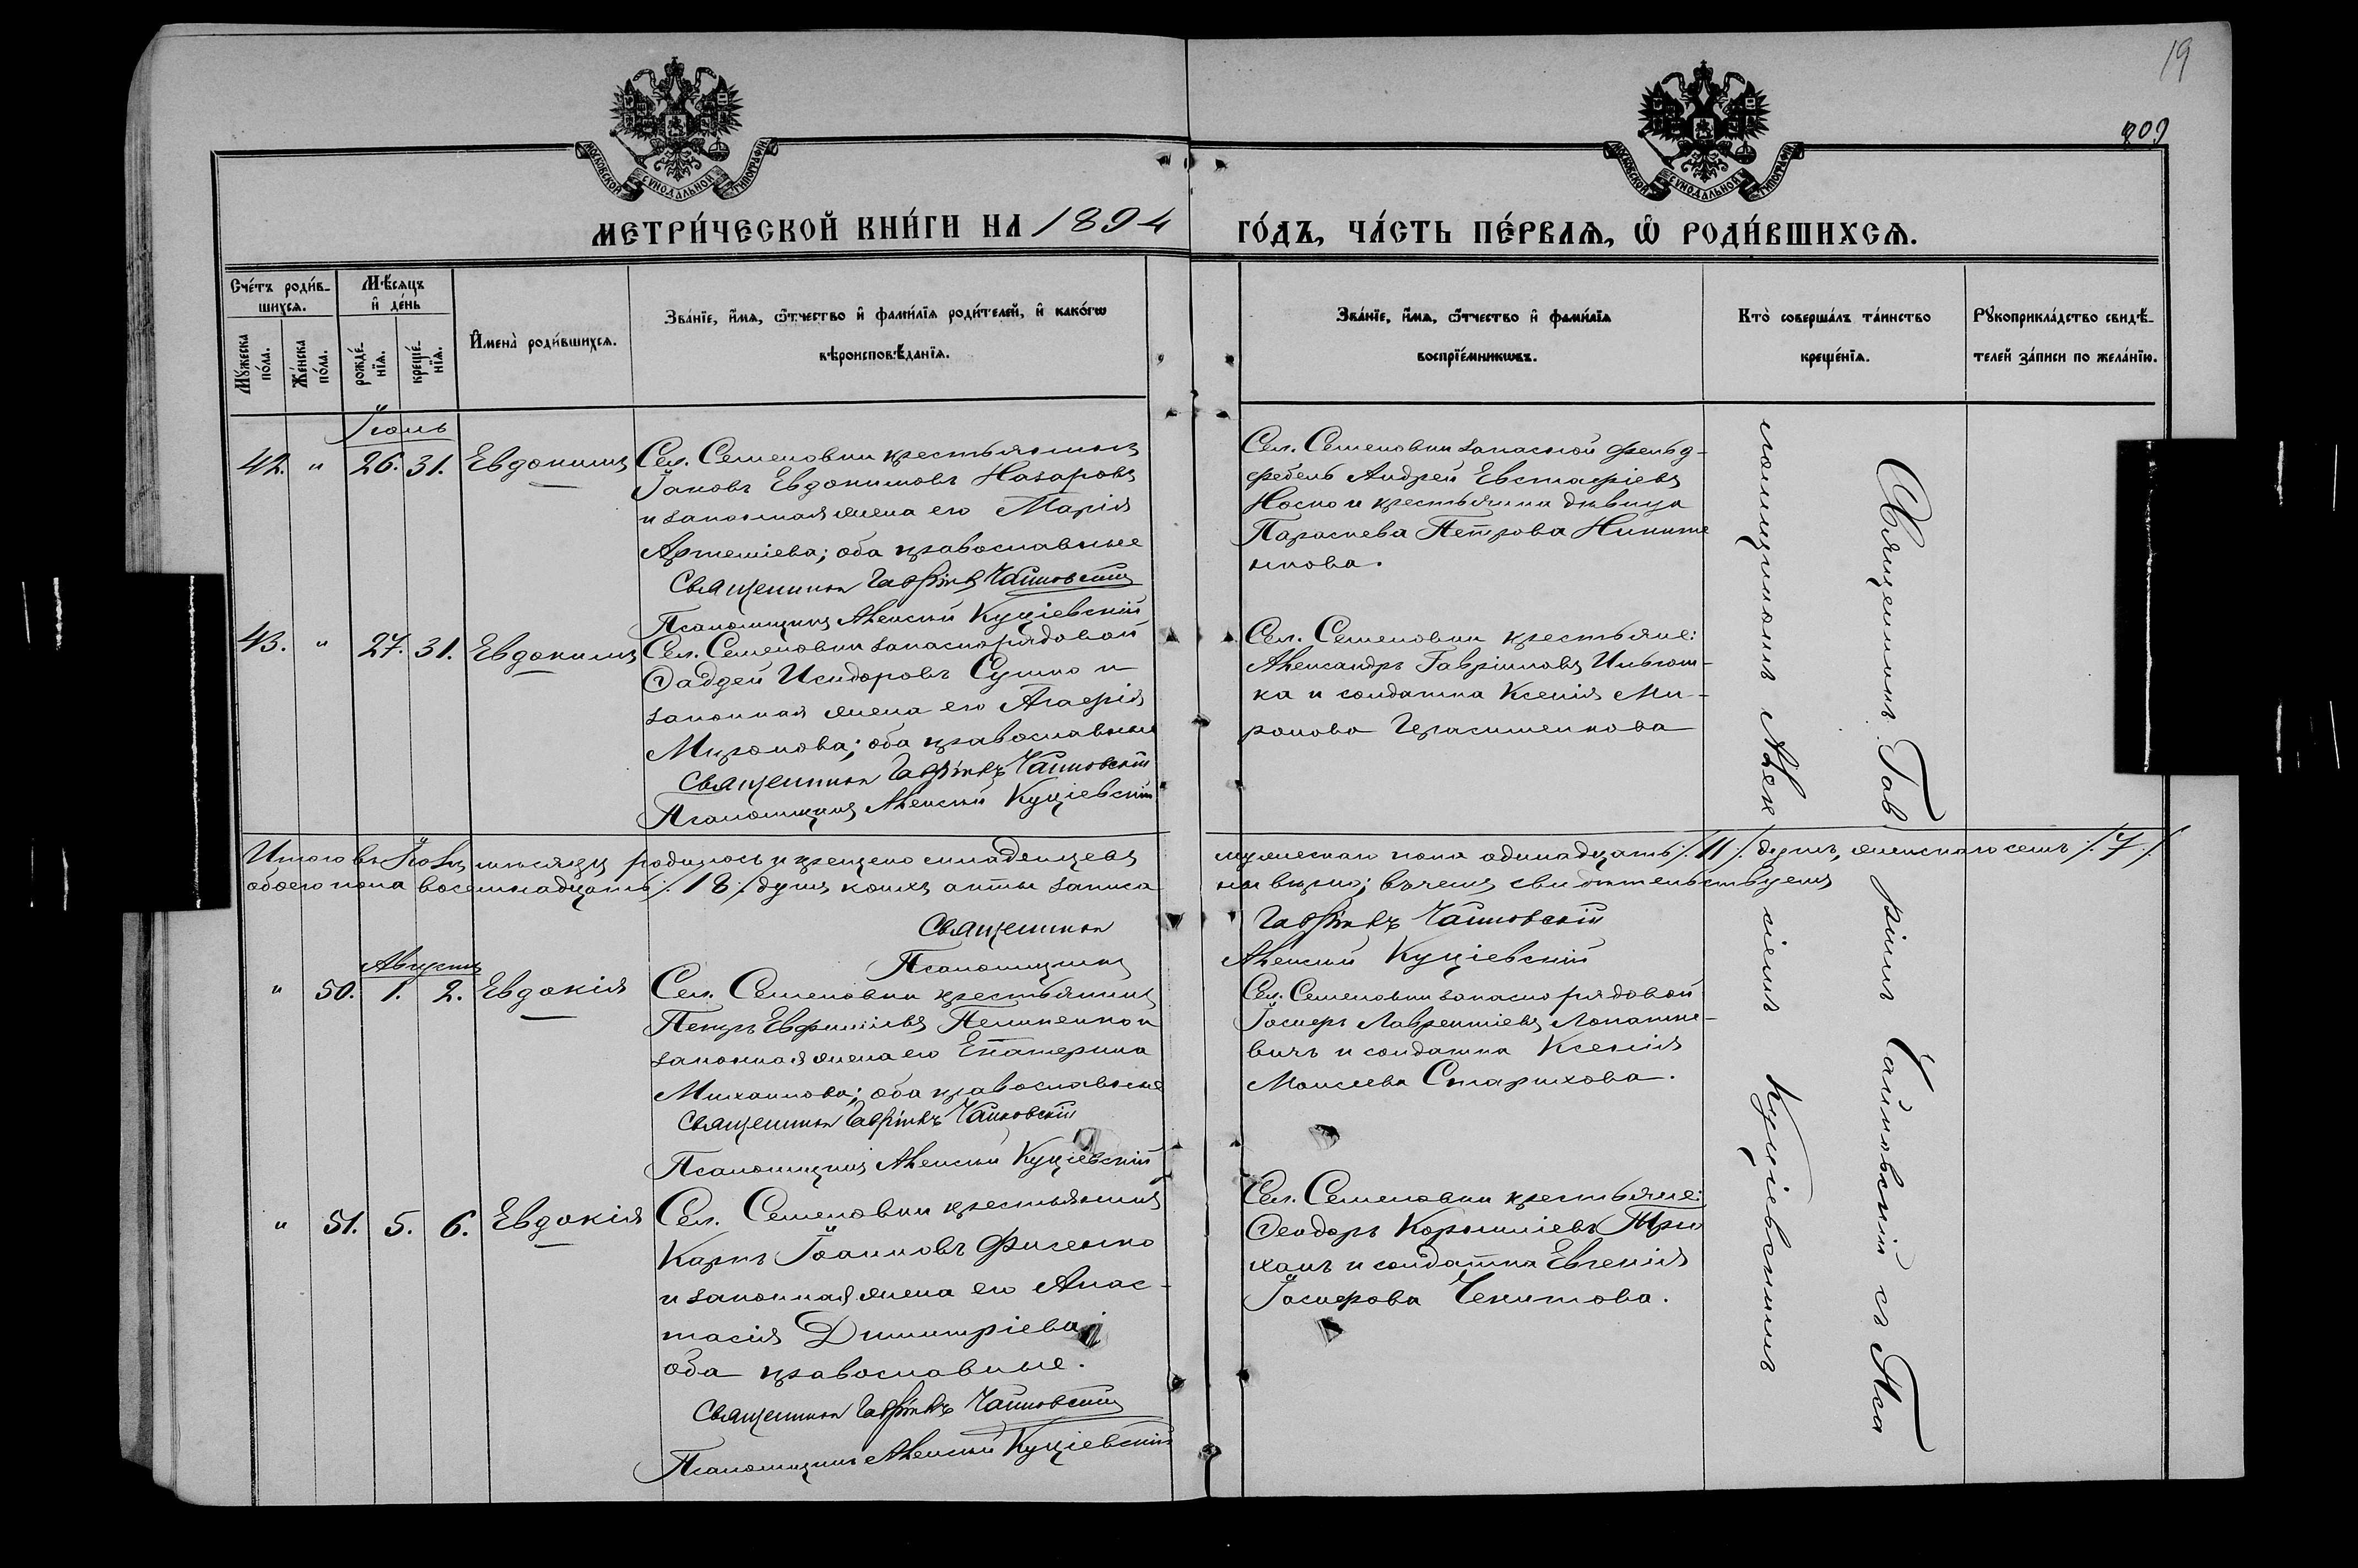 19
809
МОСКОВСКОЙ СУНОДАЛЬНОЙ ТИПОГРАФІИ
МОСКОВСКОЙ СУНОДАЛЬНОЙ ТИПОГРАФІИ
МЕТРИ́ЧЕСКОЙ КНИ́ГИ НА 1894
ГО́ДЪ, ЧА́СТЬ ПЕ́РВАѦ, Ѡ РОДИ́ВШИХСѦ.
Сче́тъ роди́в-
шихсѧ.
Мꙋ́жеска по́ла.
Же́нска по́ла.
Мѣ́сѧцъ
и҆ де́нь
рожде́-
нїѧ.
креще́-
нїѧ.
И҆мена̀ роди́вшихсѧ.
Зва́нїе, и҆́мѧ, ѻ҆́тчество и҆ фами́лїѧ роди́телей, и҆ како́гѡ
вѣроисповѣ́данїѧ.
Зва́нїе, и҆́мѧ, ѻ҆́тчество и҆ фами́лїѧ
воспрїе́мникѡвъ.
Кто̀ соверша́лъ та́инство
креще́нїѧ.
Рꙋкоприкла́дство свидѣ́-
телей за́писи по жела́нїю.
Іюль
42. " 26. 31. Евдокимъ
Сел. Семеновки крестьянинъ
Іаковъ Евдокимовъ Назаровъ
и законная жена его Марія
Артеміева; оба православные
Священникъ Гавріилъ Чайковскій
Псаломщикъ Алексій Куціевскій
Сел. Семеновки запасной фельд-
фебель Андрей Евстафіевъ
Носко и крестьянка дѣвица
Параскева Петрова Никите
нкова.
43. " 27. 31. Евдокимъ
Сел. Семеновки запасно рядовой
Ѳаддей Исидоровъ Сушко и
законная жена его Агафія
Миронова; оба православные
Священникъ Гавріилъ Чайковскій
Псаломщикъ Алексій Куціевскій
Сел. Семеновки крестьяне:
Александръ Гавріиловъ Ильюш-
ка и солдатка Ксенія Ми-
ронова Герасименкова
Итого въ Іюлѣ мѣсяцѣ родилось и крещено младенцевъ
мужескаго пола одинадцать /. 11 /. душъ, женскаго семь /. 7 /.
обоего пола восемнадцать /. 18 /. душъ коихъ акты записа
ны вѣрно; въ чемъ свидѣтельствуемъ
Священникъ Гавріилъ Чайковскій
Псаломщикъ Алексій Куціевскій
Августъ
" 50. 1. 2. Евдокія
Сел. Семеновки крестьянинъ
Петръ Евфиміевъ и
законная жена его Екатерина
Михаилова; оба православные
Священникъ Гавріилъ Чайковскій
Псаломщикъ Алексій Куціевскій
Сел. Семеновки запасно рядовой
Іосифъ Лаврентіевъ Лопатке-
вичъ и солдатка Ксенія
Моисеева Старикова.
" 51. 5. 6. Евдокія
Сел. Семеновки крестьянинъ
Карпъ Іоанновъ Фисенко
и законная жена его Анас-
тасія Димитріева;
оба православные.
Священникъ Гавріилъ Чайковскій
Псаломщикъ Алексій Куціевскій
Сел. Семеновки крестьяне:
Ѳеодоръ Корниліевъ
и солдатка Евгенія
Іосифова
Священникъ Гавріилъ Чайковскій съ Пса
ломщикомъ Алексіемъ Куціевскимъ